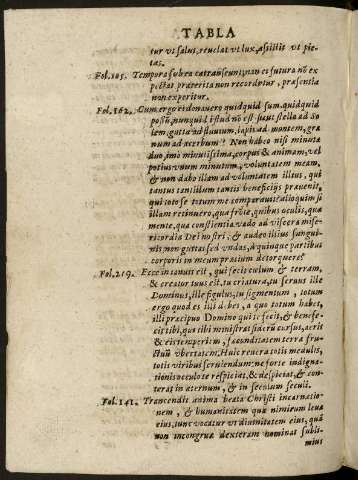 TABLA
tur vt salus, reuelat vt lux, assistit vt pie-
tas.
Fol. 105. Tempora subea catranseunt; nan et futura nō ex-
pectat praeterita non recordtur, praesentia
non experitur.
Fol. 162. Cum ergo ei donauero quidquid sum. quidquid
possū, nunquid istud nō est sicut stella ad So
lem; gutta ad fluuium, lapis ad montem, gra
num ad aceruum? Non habeo nisi minuta
duo, imo minutissima, corpus & animam, vel
potius vnum minutum, voluntatem meam,
& non dabo illam ad voluntatem illius, qui
tantus tantillum tantis beneficijs præuenit,
qui toto se totum me comparauit? alioquim si
illam retinuero, qua frōte, quibus oculis, qua
mente, qua conscientia vado ad viscera mise-
ricordiæ Dei nostri, & audeo illius sangui-
nis non guttas sed vndas, à quinque partibus
corporis in meum prætium detorquere?
Fol. 219. Ecce in canuis est, qui fecit cælum & terram,
& creator tuus est, tu creatura, tu seruus ille
Dominus, ille figulus, tu figmentum, totum
ergo quod es illi debes, a quo totum habes,
illi præcipuo Domino qui te fecit, & benefe-
cit tibi, qua tibi ministrat siderū cursus, aeris
& eius temperiem, fæcunditatem terræ fru-
ctuū vbertatem. Huic reuera totis medulis,
totis viribus seruiendum: ne forte indigna-
tionis oculo te respiciat, & despiciat, & con-
terat in æternum, & in sæculum sæculi.
Fol. 141. Trancendit anima beata Christi incarnatio-
nem, & humanitatem quæ nimirum leua
eius, tunc vocatur vt diuinitatem eius, quā
non incongruæ dexteram nominat subli-
mius